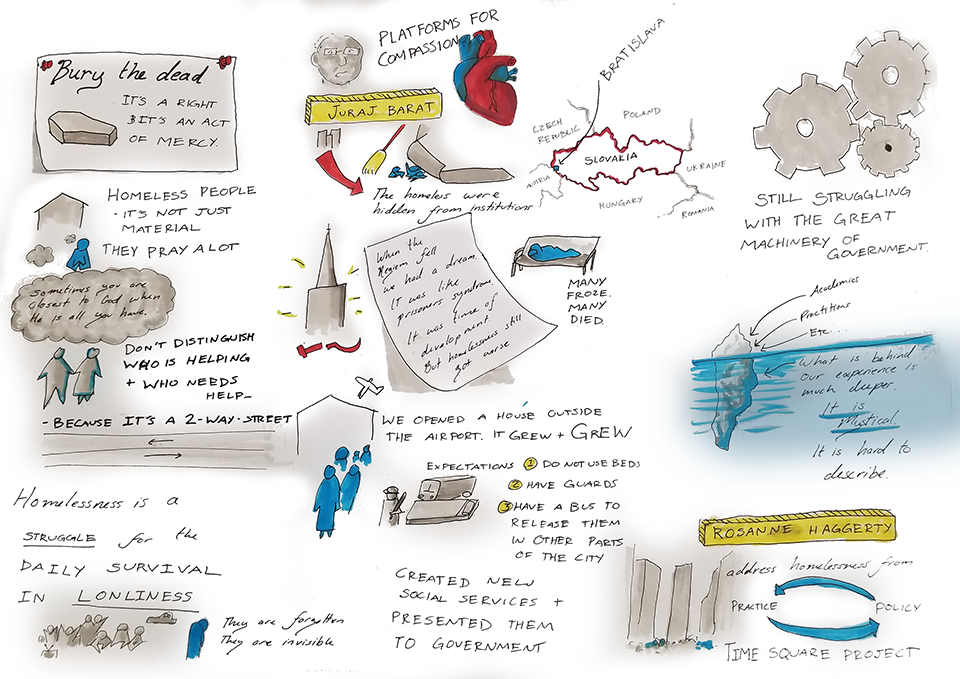 Bury the dead
IT'S A RIGHT
& IT'S AN ACT
OF MERCY.
HOMELESS PEOPLE
- IT'S NOT JUST
MATERIAL
THEY PRAY A LOT
Sometimes you are
closest to God when
He is all you have.
DON'T DISTINGUISH
WHO IS HELPING
+ WHO NEEDS
HELP-
- BECAUSE IT'S A 2-WAY-STREET
Homelessness is a
STRUGGLE for the
DAILY SURVIVAL
IN LONLINESS
They are forgotten
They are invisible
PLATFORMS FOR
COMPASSION
JURAJ BARAT
The homeless were
hidden from institutions
BRATISLAVA
CZECH
REPUBLIC
POLAND
SLOVAKIA
UKRAINE
AUSTRIA
HUNGARY
ROMANIA
When the
Regiem fell
we had a dream.
It was like
prisoners syndrome.
It was time of
development
But homelessness still
got worse
MANY
FROZE.
MANY
DIED.
WE OPENED A HOUSE OUTSIDE
THE AIRPORT. IT GREW + GREW
EXPECTATIONS 1 DO NOT USE BEDS
2 HAVE GUARDS
3 HAVE A BUS TO
RELEASE THEM
IN OTHER PARTS
OF THE CITY
CREATED NEW
SOCIAL SERVICES +
PRESENTED THEM
TO GOVERNMENT
STILL STRUGGLING
WITH THE GREAT
MACHINERY OF
GOVERNMENT.
Academics
Practitions
Etc...
What is behind
our experience is
much deeper.
It is
Mystical.
It is hard to
describe.
ROSANNE HAGGERTY
address homelessness from
PRACTICE
POLICY
TIME SQUARE PROJECT